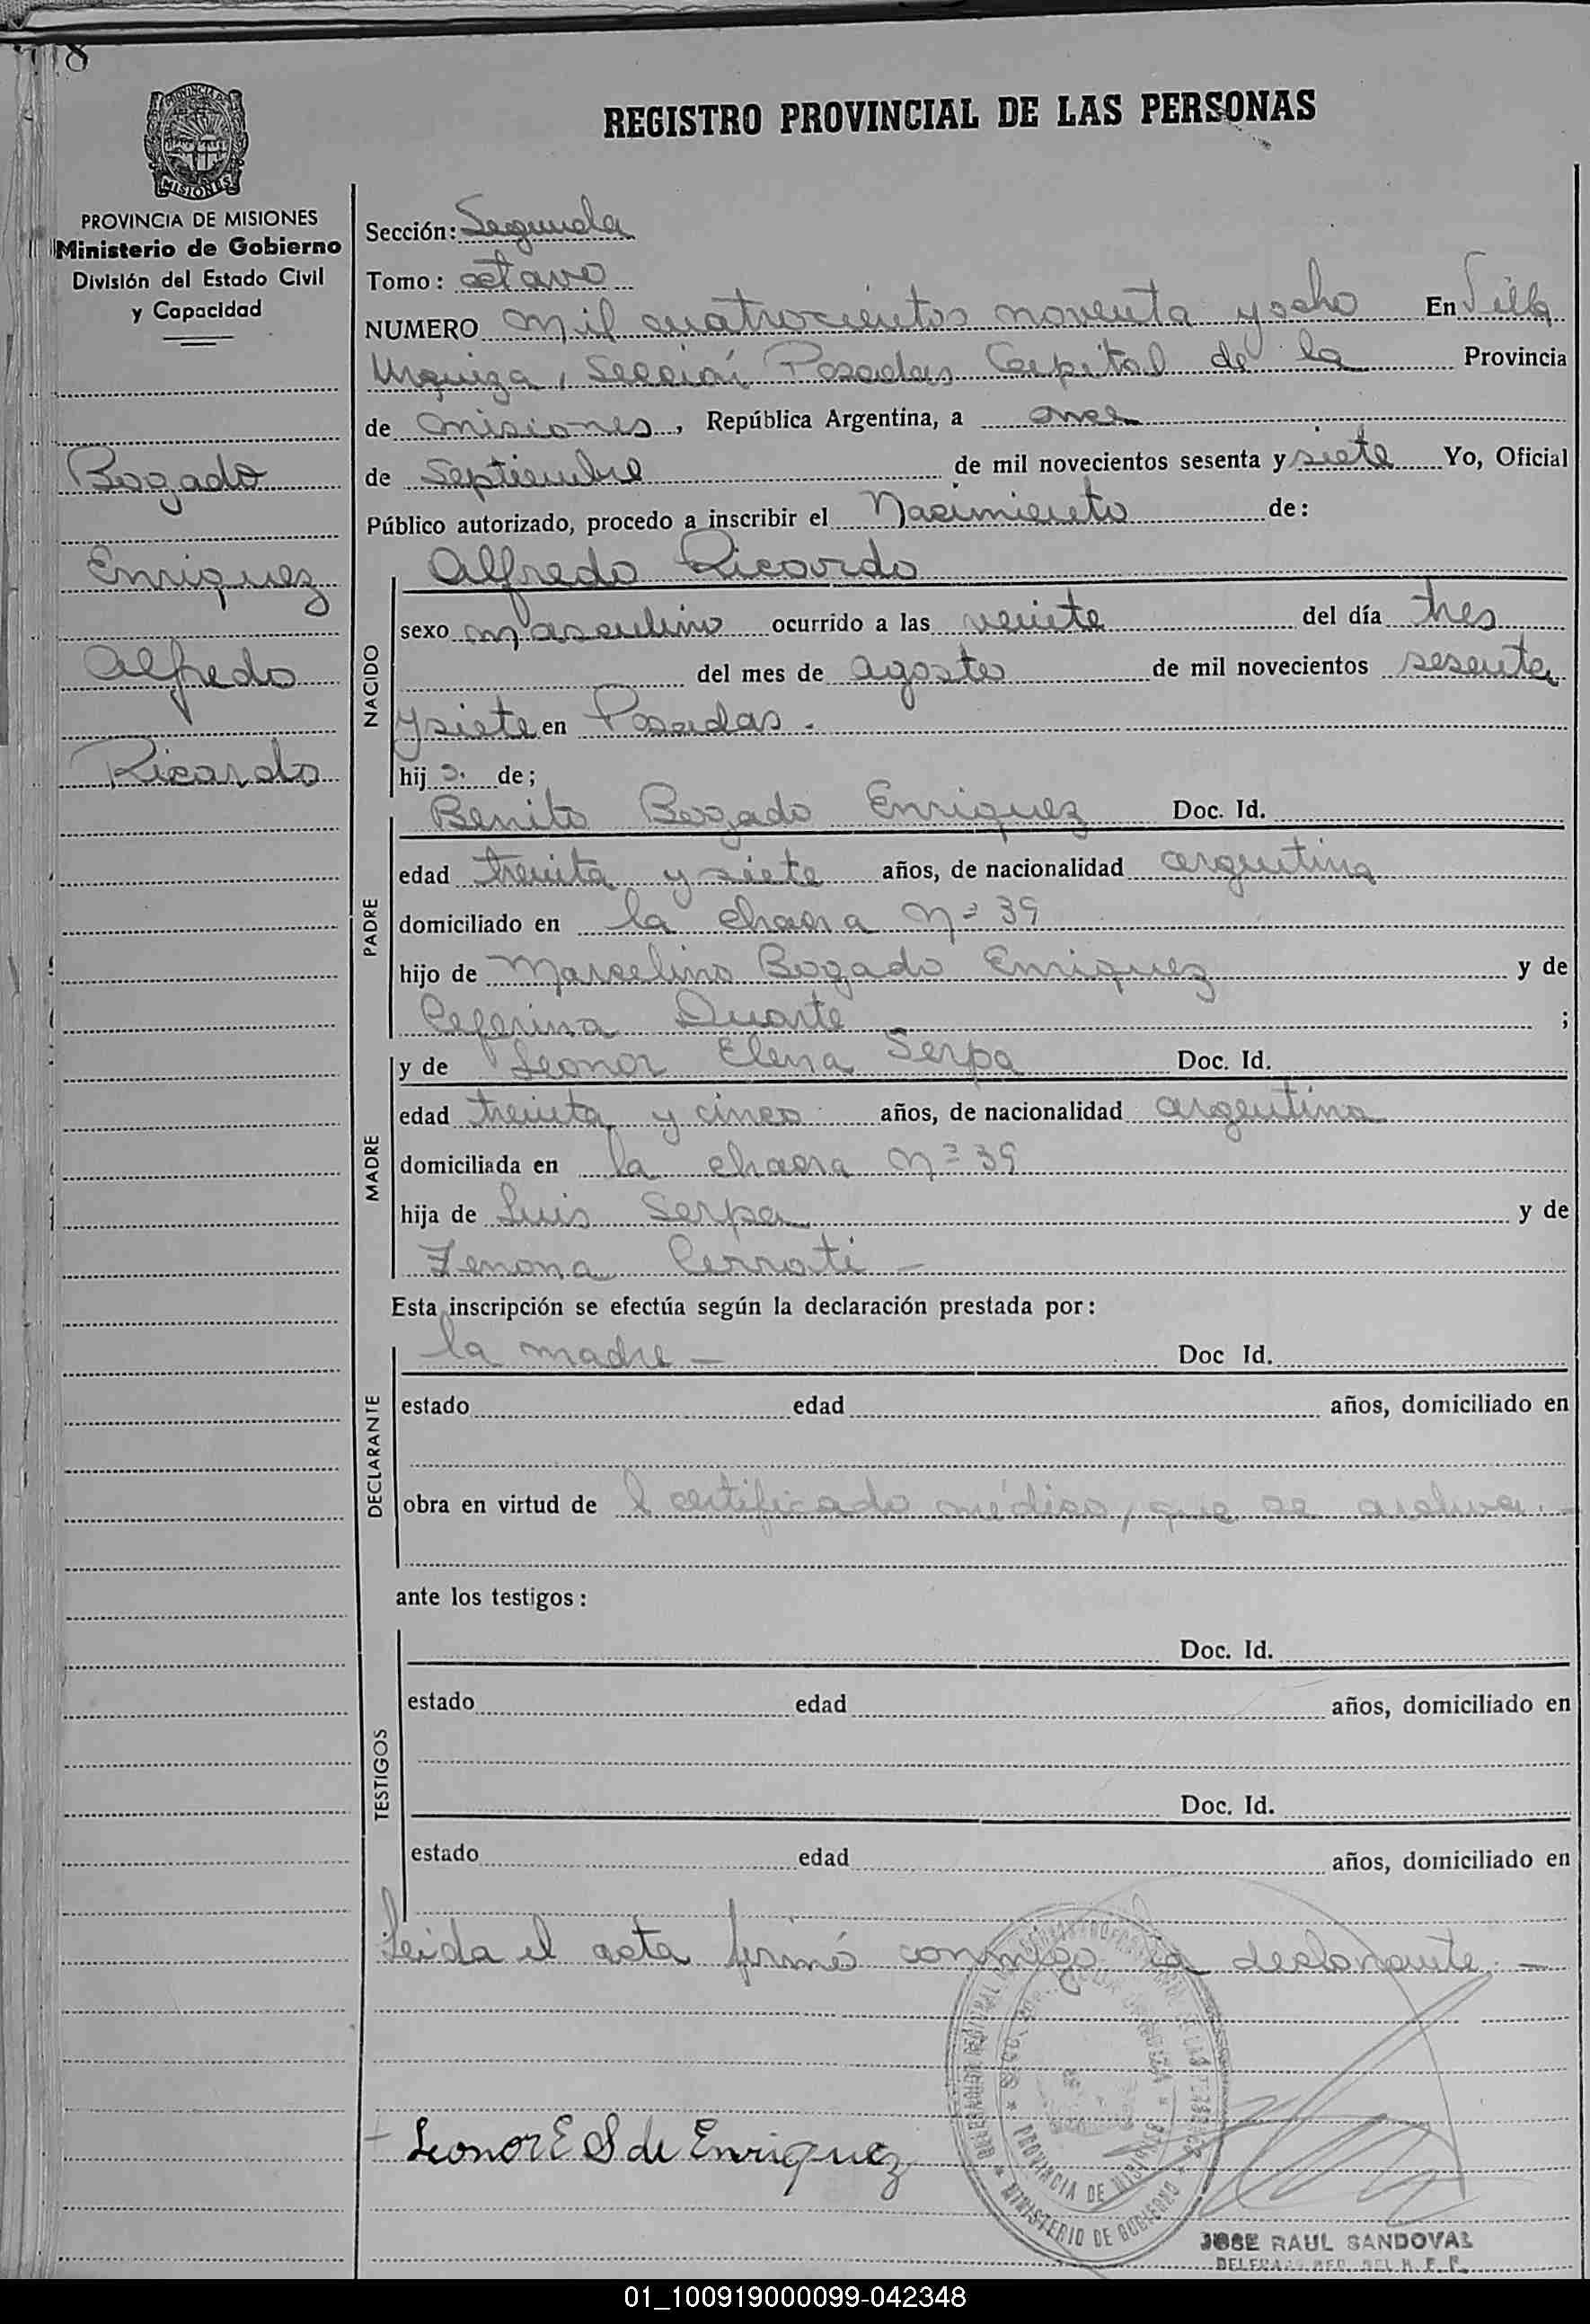 8
REGISTRO PROVINCIAL DE LAS PERSONAS
PROVINCIA DE MISIONES
Ministerio de Gobierno
División del Estado Civil
y Capacidad
Bogado
Enriquez
Alfredo
Ricardo
Sección: Segunda
Tomo: octavo
NUMERO mil cuatrocientos noventa y ocho En Villa
Urquiza, Sección Posadas Capital de la Provincia
de Misiones, República Argentina, a once
de Septiembre de mil novecientos sesenta y siete Yo, Oficial
Público autorizado, procedo a inscribir el Nacimiento de:
Alfredo Ricardo
NACIDO
sexo masculino ocurrido a las veinte del día tres
del mes de agosto de mil novecientos sesenta
y siete en Posadas.
hijo de;
Benito Bogado Enriquez Doc. Id.
PADRE
edad treinta y siete años, de nacionalidad argentina
domiciliado en la chacra Nº 39
hijo de Marcelino Bogado Enriquez y de
Ceferina Duarte ;
y de Leonor Elena Serpa Doc. Id.
MADRE
edad treinta y cinco años, de nacionalidad argentina
domiciliada en la chacra Nº 39
hija de Luis Serpa y de
Zenona Cerrati -
Esta inscripción se efectúa según la declaración prestada por:
la madre - Doc Id.
DECLARANTE
estado edad años, domiciliado en
obra en virtud de l certificado médico, que se archiva. -
ante los testigos:
TESTIGOS
Doc. Id.
estado edad años, domiciliado en
Doc. Id.
estado edad años, domiciliado en
Leida el acta firmó conmigo la declarante. -
PROVINCIA DE MISIONES
MINISTERIO DE GOBIERNO
Leonor E S de Enriquez
JOSE RAUL SANDOVAL
01_100919000099-042348